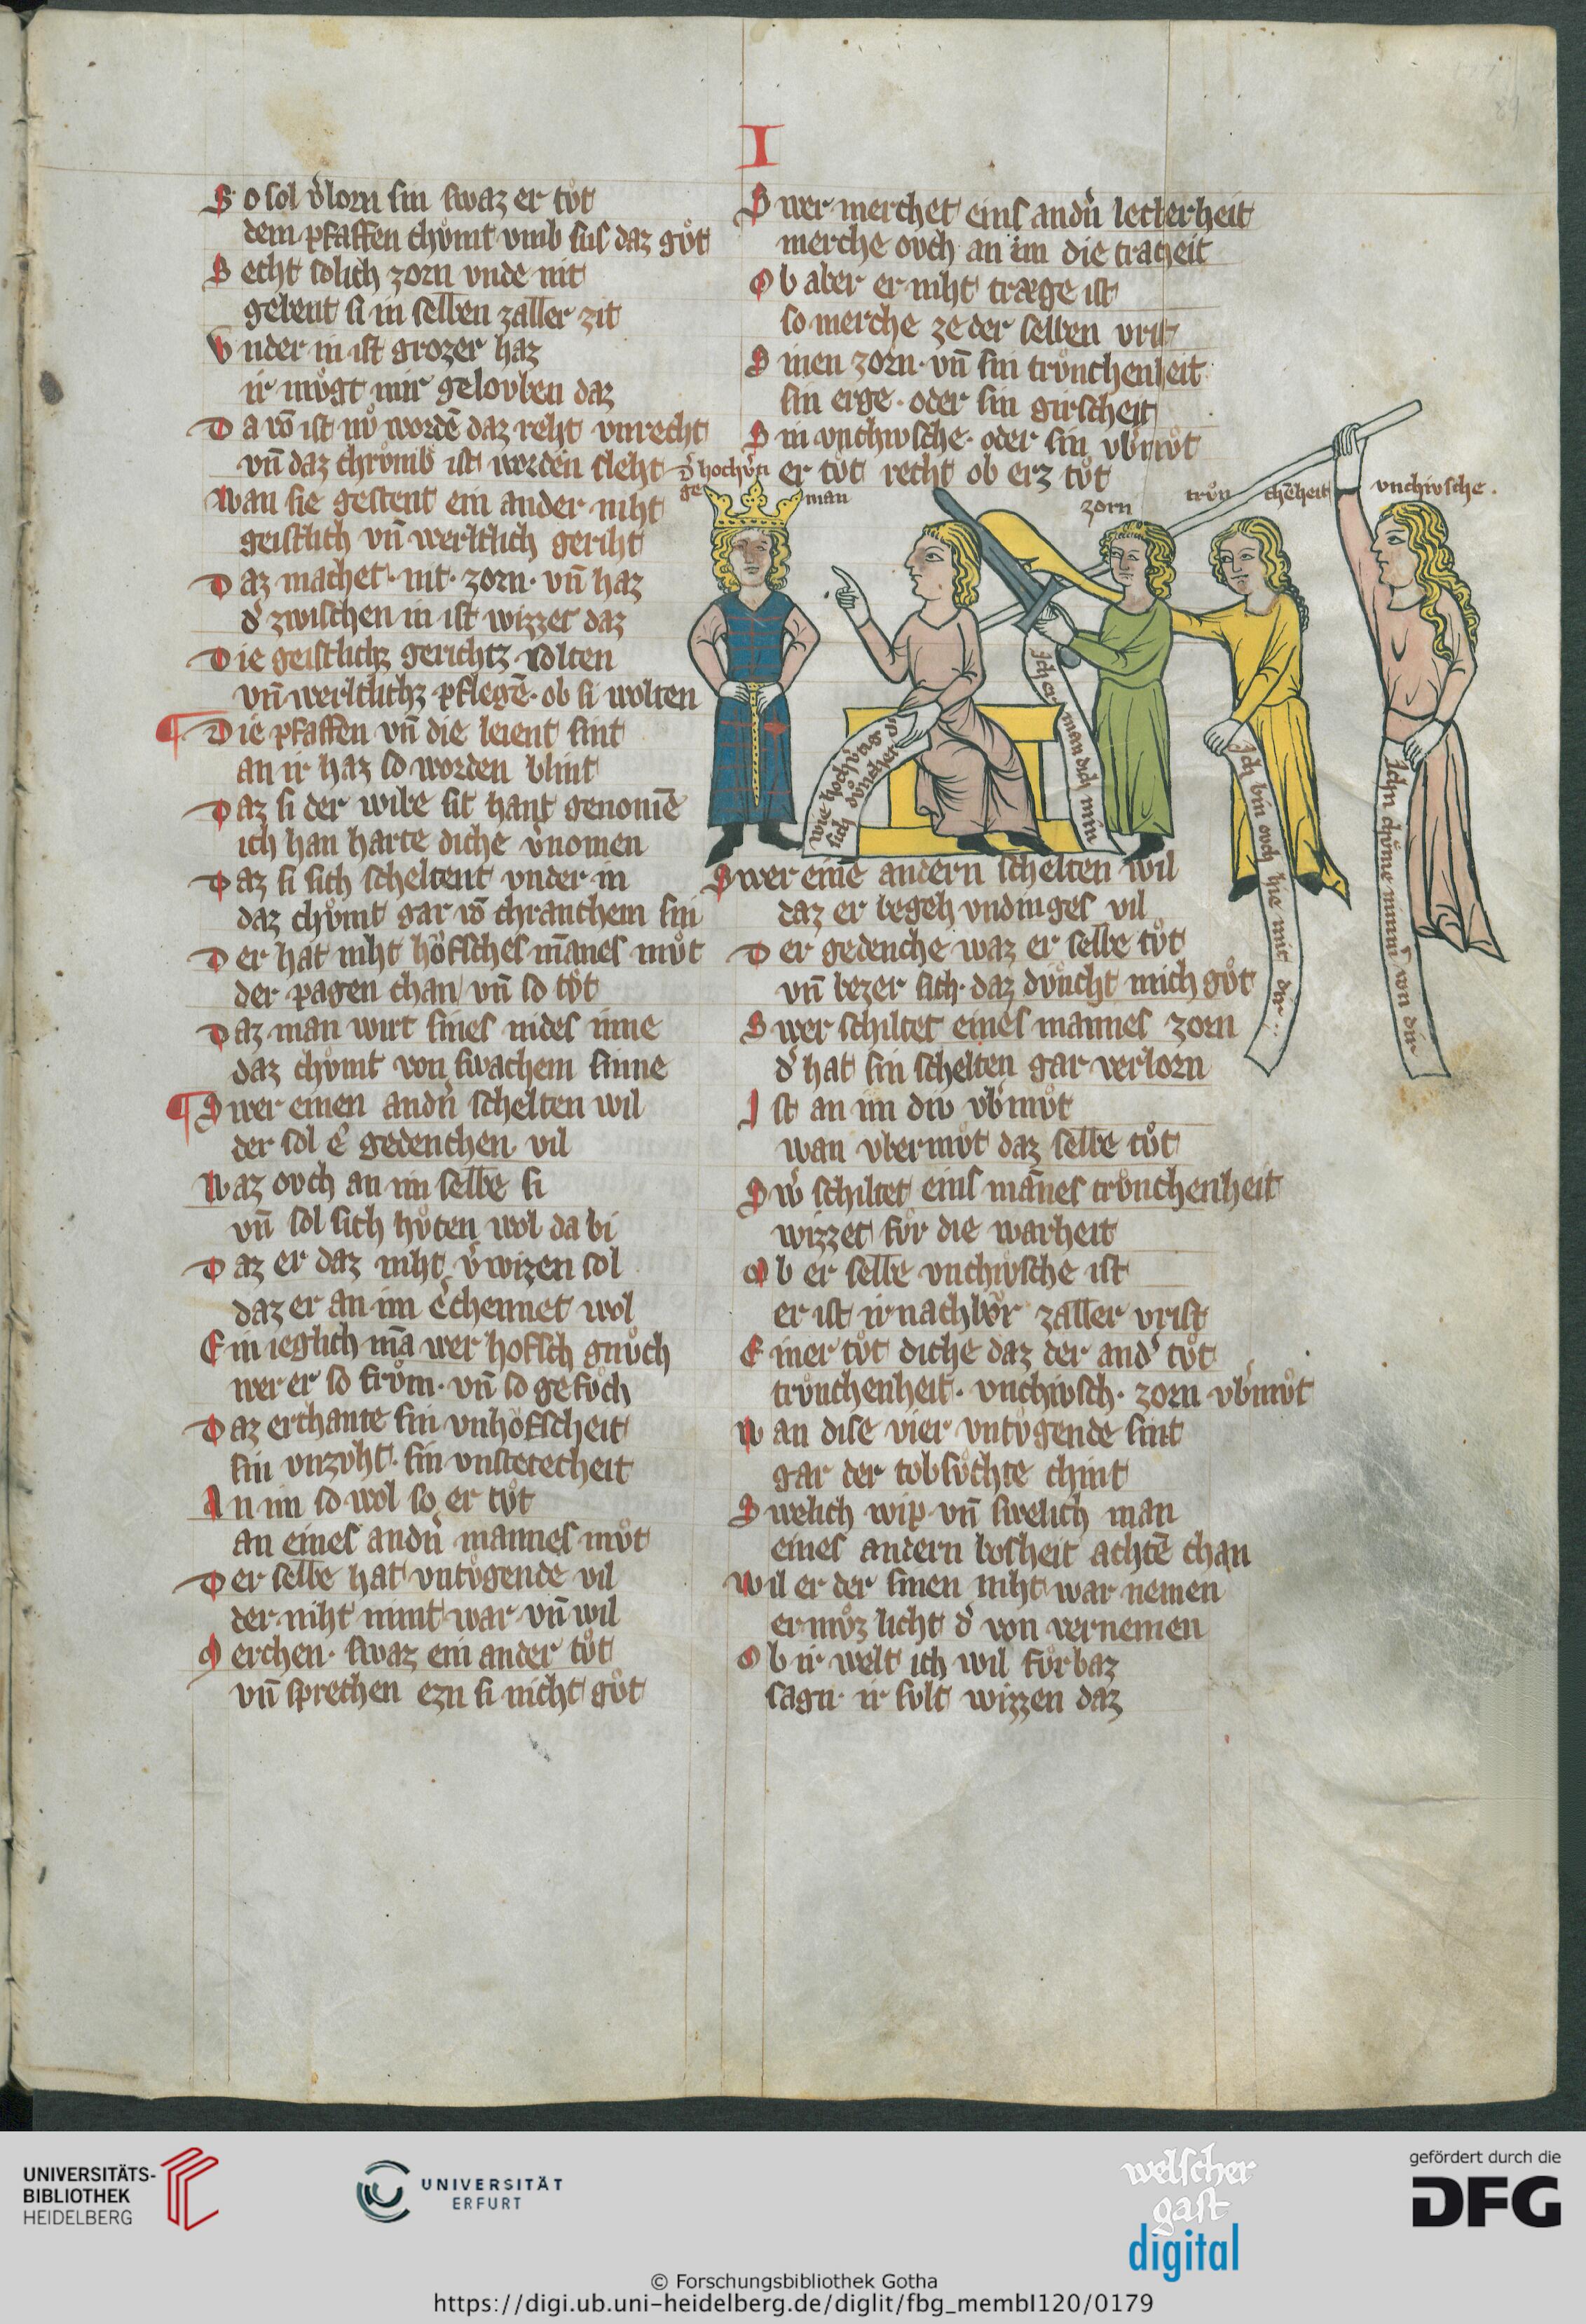 I
So sol v̓lorn sin swaz er tůt
dem pfaffen chůmt vmb sus daz gůt
Secht solich zorn vnde nit
gebent si in selben zaller zit
Vnder in ist grozer haz
ir můgt mir gelouben daz
Da võ ist nů wordē daz reht vnrecht
vñ daz chrůmb ist worden sleht
Wan sie gestent ein ander niht
geistlich vñ werltlich geriht
Daz machet· nit· zorn· vñ haz
d̓ zwischen in ist wizzet daz
Die geistlichz gerichtz solten
vñ werltlichz pflegē· ob si wolten
¶ Die pfaffen vñ die leient sint
an ir haz so worden blint
Daz si der wibe sit hant genomē
ich han harte diche v̓nomen
Daz si sich scheltent vnder in
daz chůmt gar võ chranchem sin
Der hat niht höfsches m̄anes můt
der pagen chan vñ so tůt
Daz man wirt sines nides inne
daz chůmt von swachem sinne
¶ Swer einen andn̓ schelten wil
der sol e gedenchen vil
Waz ovch an im selbe si
vñ sol sich hůten wol da bi
Daz er daz niht v̓wizen sol
daz er an im e̓chennet wol
Ein ieglich mā wer hofsch gnůch
wer er so frům· vñ so gefůch
Daz erchante sin vnhöfscheit
sin vnzvht· sin vnstetecheit
An im so wol so er tůt
an eines andn̓ mannes můt
Der selbe hat vntůgende vil
der niht nimt war vñ wil
Merchen· swaz ein ander tůt
vñ sprechen ezn si nicht gůt
Swer merchet eins andn̓ leckerheit
merche ovch an im die tracheit
Ob aber er niht træge ist
so merche ze der selben vrist
Sinen zorn· vñ sin trůnchenheit
sin erge· oder sin girscheit
Sin vnchivsche· oder sin vb̓můt
er tůt recht ob erz tůt
d̓ hochv̓tige man
zorn
trůnchēheit
vnchivsche·
wie hochv̓tig d̓ sich důnchet
Jch er man dich min
Jch bin ovch hie mit dir
Jchn chůme nimm̓ von dir
Swer eine andern schelten wil
daz er begeh vndinges vil
Der gedenche waz er selbe tůt
vñ bezer sich· daz důncht mich gůt
Swer schiltet eines mannes zorn
d̓ hat sin schelten gar verlorn
Ist an im div vb̓můt
wan vbermůt daz selbe tůt
Sw̓ schiltet eins māīnes trůnchenheit
wizzet fůr die warheit
Ob er selbe vnchivsche ist
er ist ir nachbör zaller vrist
Einer tůt diche daz der and̓ tůt
trůnchenheit· vnchivsch· zorn vb̓můt
Wan dise vier vntůgende sint
gar der tobsůchte chint
Swelich wip vñ swelich man
eines andern bosheit achtē chan
Wil er der sinen niht war nemen
er můz licht d̓ von vernemen
Ob ir welt ich wil fůrbaz
sagn· ir svlt wizzen daz
UNIVERSITÄTS-
BIBLIOTHEK
HEIDELBERG
UNIVERSITÄT
ERFURT
welscher
gast
digital
gefördert durch die
DFG
© Forschungsbibliothek Gotha
https://digi.ub.uni-heidelberg.de/diglit/fbg_membI120/0179